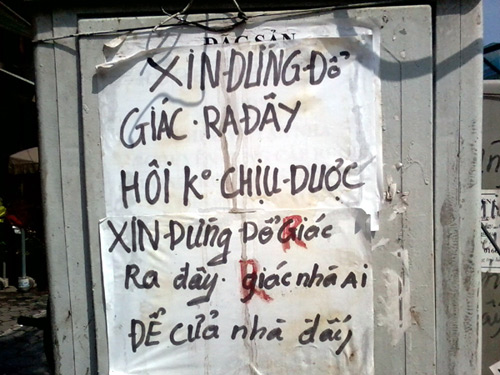 ĐẶC SẢN
XIN ĐỪNG ĐỔ
GIÁC RA ĐÂY
HÔI K° CHỊU ĐƯỢC
XIN ĐỪNG ĐỔ Giác
Ra đây. giác nhà Ai
ĐỂ CỬA nhà đấy